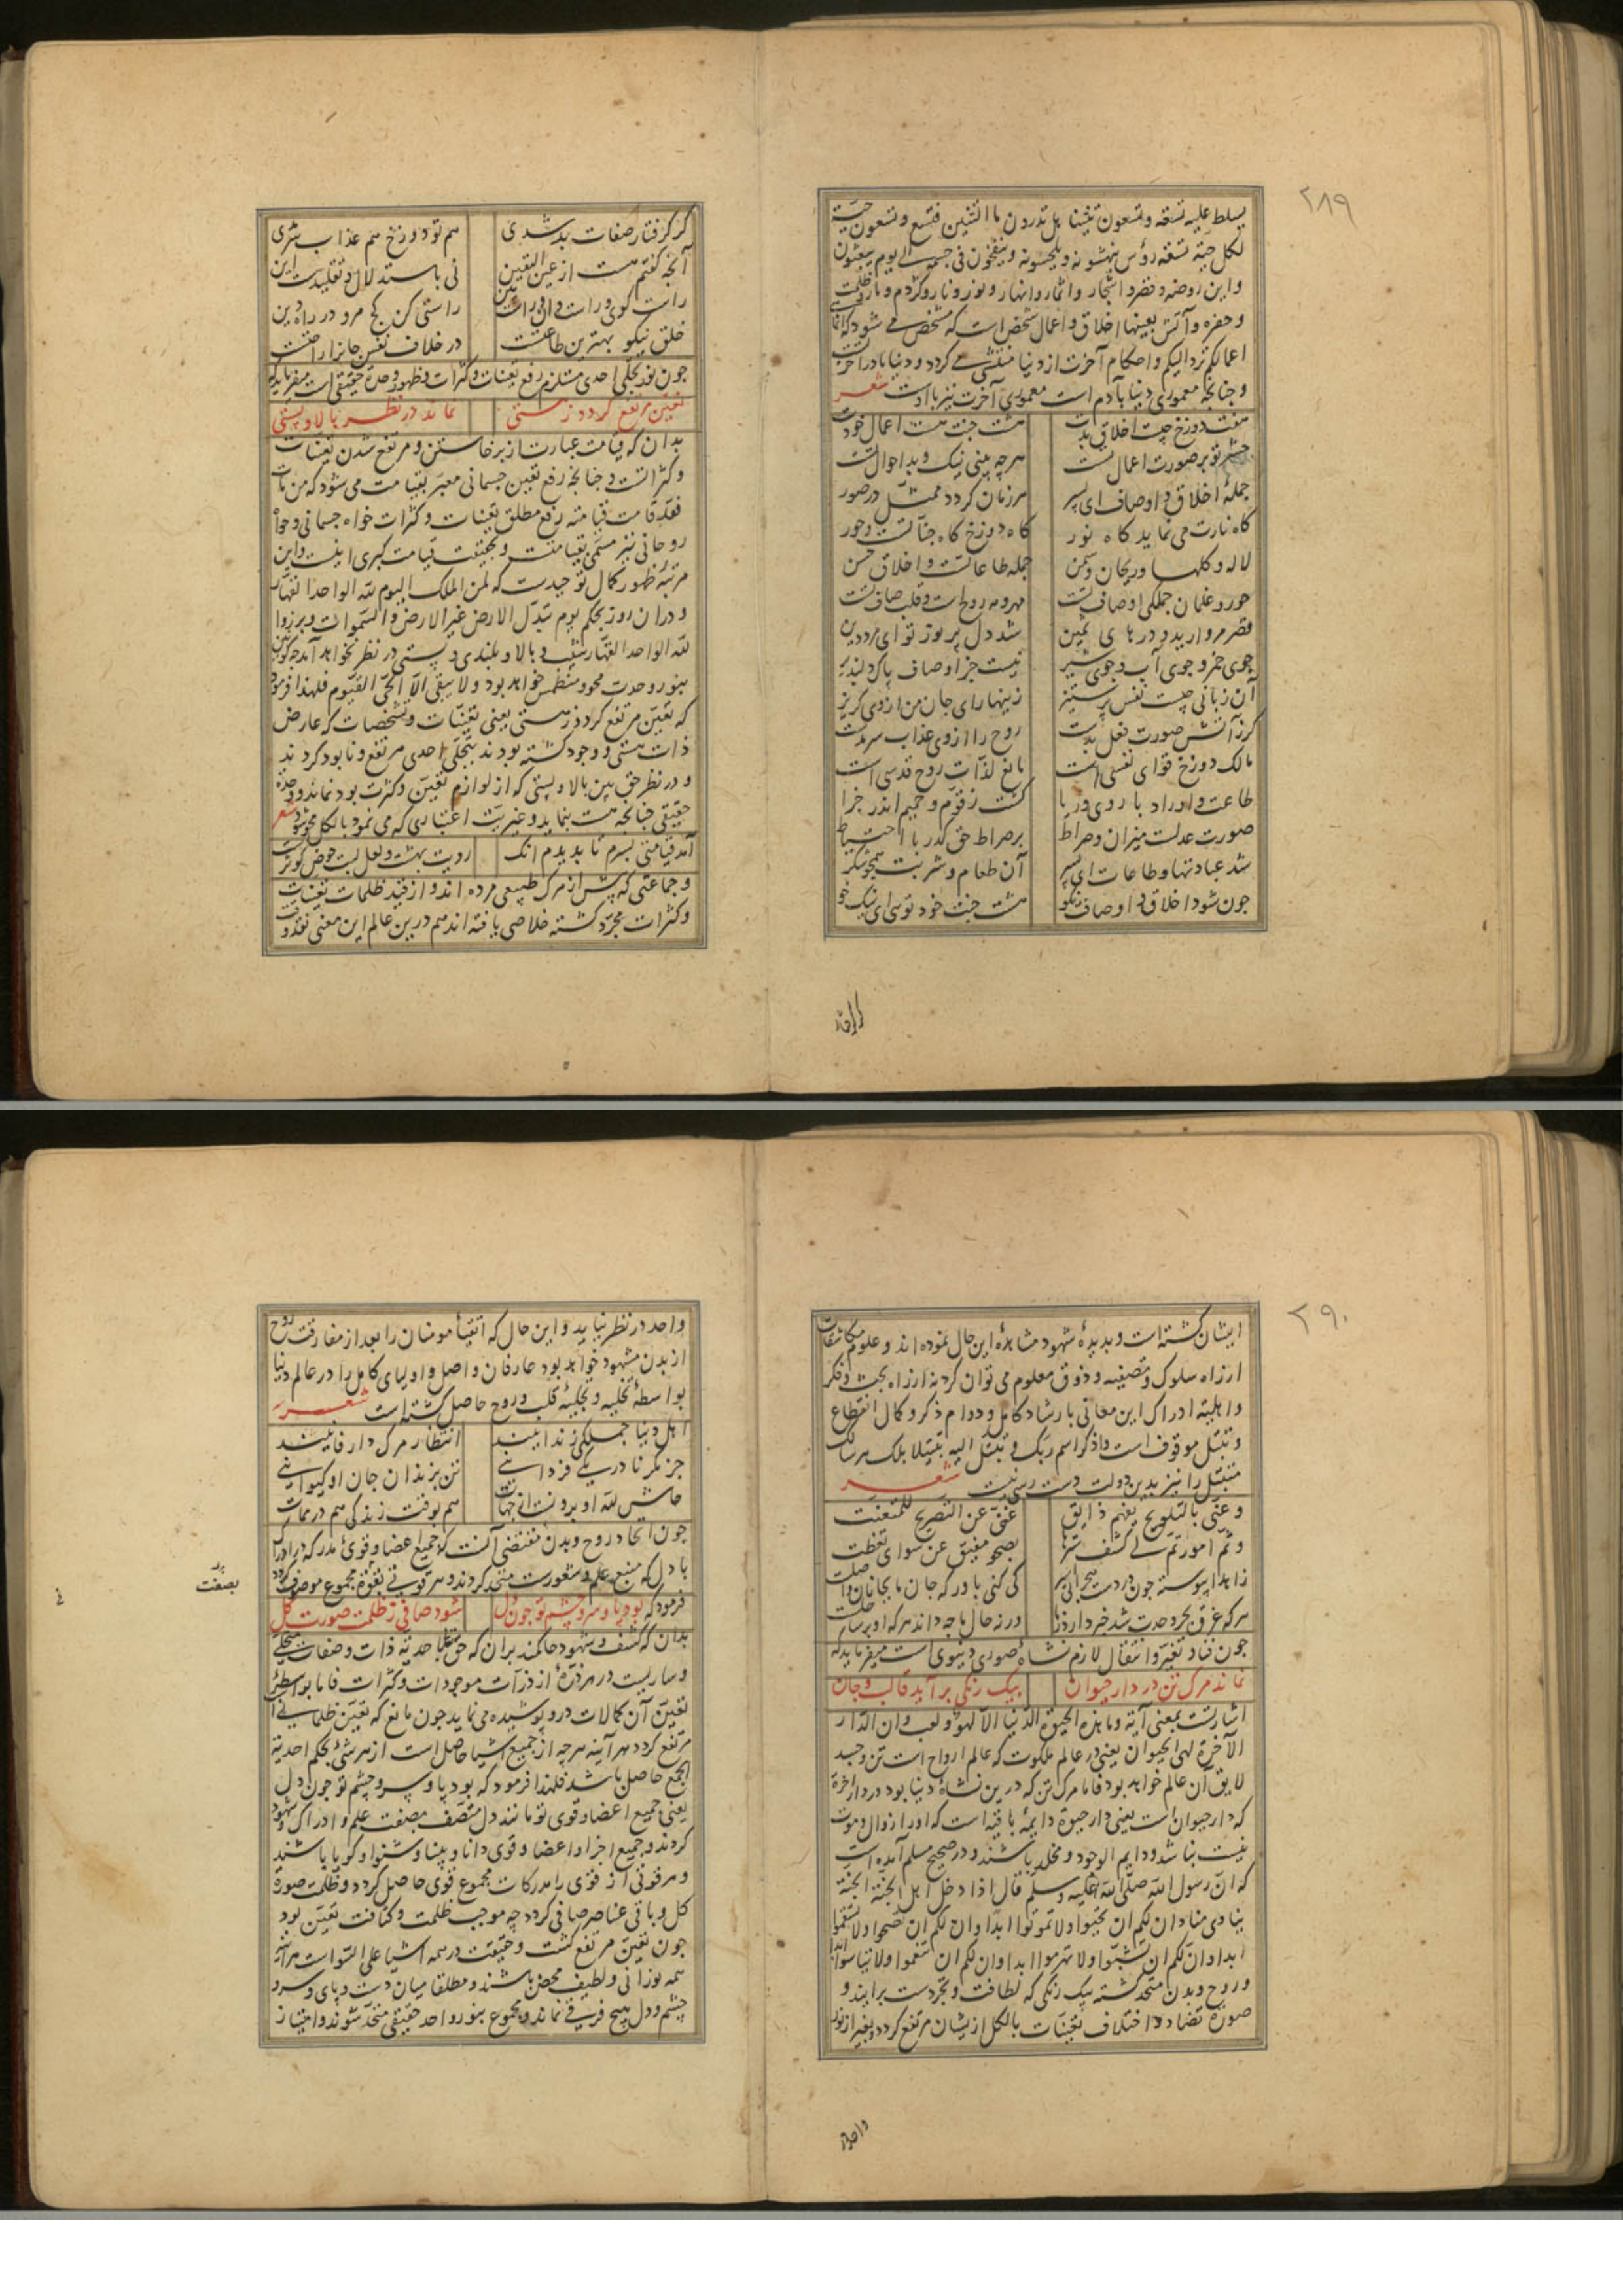 ۲۸۹
یسلط علیه تسعه و تسعون تنینا هل تدرون ما التنین تسع و تسعون حیة
لکل حیة تسعه رؤس ینهشونه و یلحسونه و ینفخون فی جسمه الی یوم یبعثون
و این روضه و قصر و اشجار و اثمار و انهار و نور و نار و کژدم و مار و ظلمت
و حفره و آتش بعینها اخلاق و اعمال شخص است که مشخص می شود که انما
اعمالکم ترد الیکم و احکام آخرت از دنیا منتشی می کردد و دنیا مادر آخرت
و چنانچه معموری دنیا بآدم است معموری آخرت نیز باوست شعر
هفت دوزخ چیست اخلاق بدت هشت جنت هست اعمال خودت
حشر تو بر صورت اعمال تست هرچه بینی نیک و بد احوال تست
جملهٔ اخلاق و اوصاف ای پسر هر زمان کردد ممثل در صور
کاه نارت می نماید کاه نور کاه دوزخ کاه جناتست و حور
لاله و کلها و ریحان و سمن جمله طاعاتست و اخلاق حسن
حور و غلمان جملکی اوصاف تست مهر و مه روح است و قلب صاف تست
قصر مروارید و درهای ثمین شد دل پر نور تو ای مرد دین
جوی خمر و جوی آب و جوی شیر نیست جز اوصاف پاک دلپذیر
آن زبانی چیست نفس پر ستیز زینهار ای جان من از وی کریز
کرز آتش صورت فعل بدست روح را از وی عذاب سرمدست
مالک دوزخ قوای نفسی است مانع لذات روح قدسی است
طاعت و اوراد با روی و ریا کشت زقوم و حمیم اندر جزا
صورت عدلست میزان و صراط بر صراط حق کذر با احتیاط
شد عبادتها و طاعات ای پسر آن طعام و شربت همچون شکر
چون شود اخلاق و اوصاف نکو هشت جنت خود توی ای نیک خو
کر کرفتار
کر کرفتار صفات بد شدی هم تو دوزخ هم عذاب سرمدی
آنچه کفتم هست از عین الیقین نی باستدلال و تقلیدست این
راست کوی و راست دان و راست بین راستی کن کج مرو در راه دین
خلق نیکو بهترین طاعتست در خلاف نفس جانرا راحتست
چون نور تجلی احدی مستلزم رفع تعینات و کثرات و ظهور وحدة حقیقی است میفرماید که
تعین مرتفع کردد ز هستی نماند در نظر بالا و پستی
بدان که قیامت عبارت از برخاستن و مرتفع شدن تعینات
و کثراتست و چنانچه رفع تعین جسمانی معبر بقیامت می شود که من مات
فقد قامت قیامته رفع مطلق تعینات و کثرات خواه جسمانی و خواه
روحانی نیز مسمی بقیامتست و بحقیقت قیامت کبری اینست و این
مرتبهٔ ظهور کمال توحیدست که لمن الملک الیوم لله الواحد القهار
و در آن روز بحکم یوم تبدل الارض غیر الارض و السموات و برزوا
لله الواحد القهار شیب و بالا و بلندی و پستی در نظر نخواهد آمد چه کونین
بنور وحدت محو و منطمس خواهد بود و لا یبقی الا الحی القیوم فلهذا فرمود
که تعین مرتفع کردد ز هستی یعنی تعینات و تشخصات که عارض
ذات هستی و وجود کشته بودند بتجلی احدی مرتفع و نابود کردند
و در نظر حق بین بالا و پستی که از لوازم تعین و کثرت بود نماند و وحدة
حقیقی چنانچه هست بنماید و غیریت اعتباری که می نمود بالکل محو شود شعر
آمد قیامتی بسرم تا بدیدم آنک رویت بهشت و لعل لبت حوض کوثرست
و جماعتی که پیش از مرک طبیعی مرده اند و از قید ظلمات تعینات
و کثرات مجرد کشته خلاصی یافته اند هم درین عالم این معنی نقد وقت
۲۹۰
ایشان کشته است و بدیدهٔ شهود مشاهدهٔ این حال نموده اند و علوم مکاشفات
از راه سلوک و تصفیه و ذوق معلوم می توان کرد نه از راه بحث و فکر
و اهلیت ادراک این معانی بارشاد کامل و دوام ذکر و کمال انقطاع
و تبتل موقوف است و اذکر اسم ربک و تبتل الیه تبتیلا بلک هر سالک
متبتل را نیز بدین دولت دست رس نیست شعر
و عنی بالتلویح یفهم ذایق غنی عن التصریح للمتعنت
و ثم امور تم لی کشف سترها بصحو مفیق عن سوای تغطت
زاهدا پیوسته چون در دست هجرانی اسیر کی کنی باور که جان ما بجانان واصلست
هرکه غرق بحر وحدت شد خبر دارد ز ما ورنه حال ما چه داند هرکه او بر ساحلست
چون فنا و تغیر و انتقال لازم نشاهٔ صوری دنیوی است میفرماید که
نماند مرک تن در دار حیوان بیک رنکی برآید قالب و جان
اشارتست بمعنی آیة و ما هذه الحیوة الدنیا الا لهو و لعب و ان الدار
الآخرة لهی الحیوان یعنی در عالم ملکوت که عالم ارواح است تن و جسد
لایق آن عالم خواهد بود فاما مرک تن که درین نشاهٔ دنیا بود در دار آخرة
که دار حیوان است یعنی دار حیوة دایمهٔ باقیه است که او را زوال و موت
نیست نباشد و دایم الوجود و مخلد باشند و در صحیح مسلم آمده است
که ان رسول الله صلی الله علیه و سلم قال اذا دخل اهل الجنة الجنة
ینادی مناد ان لکم ان تحیوا و لا تموتوا ابدا و ان لکم ان تصحوا و لا تسقموا
ابدا و ان لکم ان تشبوا و لا تهرموا ابدا و ان لکم ان تنعموا و لا تباسوا ابدا
و روح و بدن متحد کشته بیک رنکی که لطافت و تجردست برایند و
صورة تضاد و اختلاف تعینات بالکل ازیشان مرتفع کردد و بغیر از نور
واحد در
واحد در نظر نیاید و این حال که اتقیاء مومنان را بعد از مفارقت روح
از بدن مشهود خواهد بود عارفان واصل و اولیای کامل را در عالم دنیا
بواسطهٔ تخلیه و تجلیهٔ قلب و روح حاصل کشته است شعر
اهل دنیا جملکی زندانیند انتظار مرک دار فانیند
جز مکر نادر یکی فردانیی تن بزندان جان او کیوانیی
حاش لله او برونست از جهات هم بوقت زندکی هم در ممات
چون اتحاد روح و بدن مقتضی آنست که جمیع اعضا و قوی مدرکه در ادراک
با دل که منبع علم و شعورست متحد کردند و هر قوتی بقوة مجموع موصوف کردد
فرمود که بود پا و سر و چشم تو چون دل شود صافی ز ظلمت صورت کل
بدان که کشف و شهود حاکمند بران که حق تعالی باحدیة ذات و صفات متجلی
و ساریست در هر ذرهٔ از ذرات موجودات و کثرات فاما بواسطهٔ
تعین آن کمالات درو پوشیده می نماید چون مانع که تعین ظلمانی است
مرتفع کردد هر آینه هرچه از جمیع اشیا حاصل است از هر شئ بحکم احدیة
الجمع حاصل باشد فلهذا فرمود که بود پا و سر و چشم تو چون دل
یعنی جمیع اعضا و قوی تو مانند دل متصف بصفت علم و ادراک و شهود
کردند و جمیع اجزا و اعضا و قوی دانا و بینا و شنوا و کویا باشند
و هر قوتی از قوی را مدرکات مجموع قوی حاصل کردد و ظلمت صورة
کل و باقی عناصر صافی کردد چه موجب ظلمت و کثافت تعین بود
چون تعین مرتفع کشت و حقیقت در همه اشیا علی السواست هر آینه
همه نورانی و لطیف محض باشند و مطلقا میان دست و پای و سر و
چشم و دل هیچ فرقی نماند و مجموع بنور واحد حقیقی متحد شوند و امتیاز
بصفت